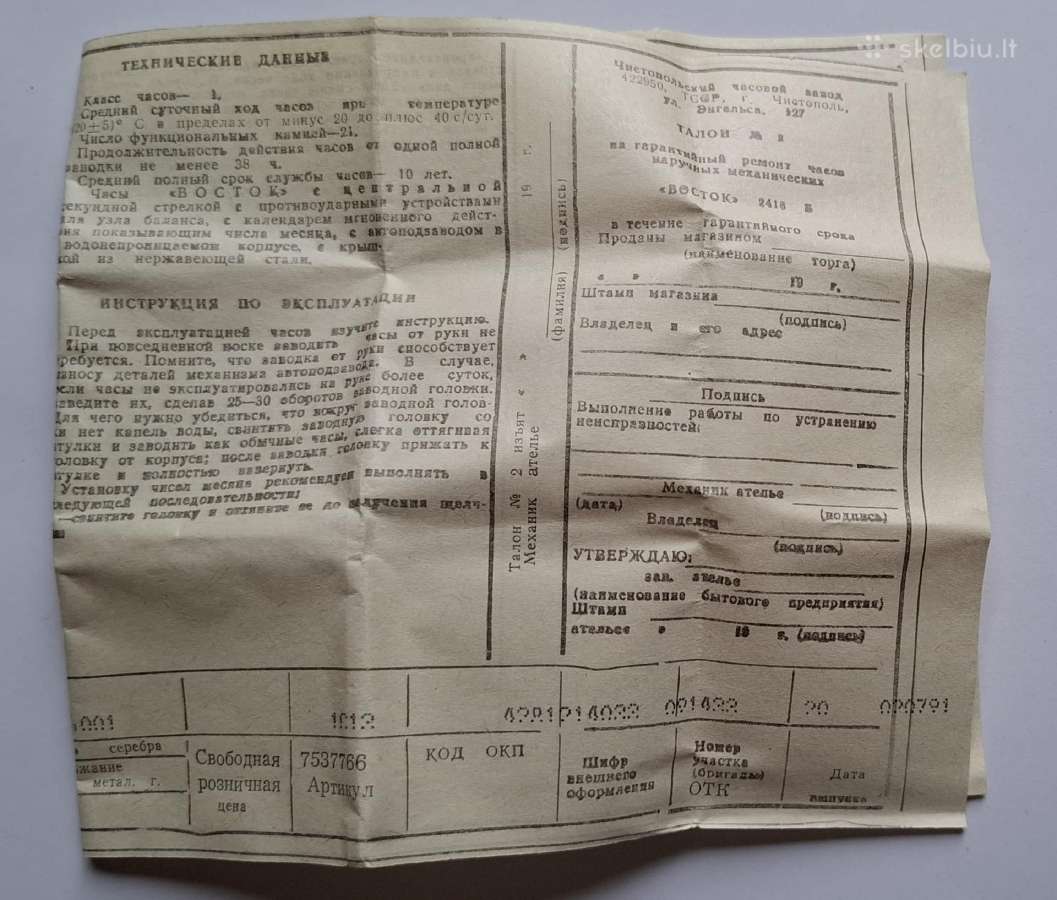 skelbiu.lt
ТЕХНИЧЕСКИЕ ДАННЫЕ
Класс часов— 1.
Средний суточный ход часов при температуре
(20±5)° С в пределах от минус 20 до плюс 40 с/сут.
Число функциональных камней—21.
Продолжительность действия часов от одной полной
заводки не менее 38 ч.
Средний полный срок службы часов— 10 лет.
Часы «ВОСТОК» с центральной
секундной стрелкой с противоударными устройствами
для узла баланса, с календарем мгновенного дейст-
вия показывающим числа месяца, с автоподзаводом в
водонепроницаемом корпусе, с крыш-
кой из нержавеющей стали.
ИНСТРУКЦИЯ ПО ЭКСПЛУАТАЦИИ
Перед эксплуатацией часов изучите инструкцию.
При повседневной носке заводить часы от руки не
требуется. Помните, что заводка от руки способствует
износу деталей механизма автоподзавода. В случае,
если часы не эксплуатировались на руке более суток,
заведите их, сделав 25—30 оборотов заводной головки.
Для чего нужно убедиться, что вокруг заводной голов-
ки нет капель воды, свинтить заводную головку со
втулки и заводить как обычные часы, слегка оттягивая
головку от корпуса; после заводки головку прижать к
втулке и полностью завернуть.
Установку чисел месяца рекомендуем выполнять в
следующей последовательности:
—свинтите головку и оттяните ее до получения щелч-
Талон № 2 изъят « »
19 г.
Механик ателье
(фамилия) (подпись)
Чистопольский часовой завод
422950, ТССР, г. Чистополь,
ул. Энгельса, 127
ТАЛОН № 2
на гарантийный ремонт часов
наручных механических
«ВОСТОК» 2416 Б
в течение гарантийного срока
Проданы магазином
(наименование торга)
« » 19 г.
Штамп магазина
(подпись)
Владелец и его адрес
Подпись
Выполнение работы по устранению
неисправностей:
Механик ателье
(дата) (подпись)
Владелец
(подпись)
УТВЕРЖДАЮ:
зав. ателье
(наименование бытового предприятия)
Штамп
ателье « 19 г. (подпись)
001 1013 4281214033 091433 20 020791
серебра
метал. г.
Свободная
розничная
цена
7537766
Артикул
КОД ОКП
Шифр
внешнего
оформления
Номер
участка
(бригады)
ОТК
Дата
выпуска